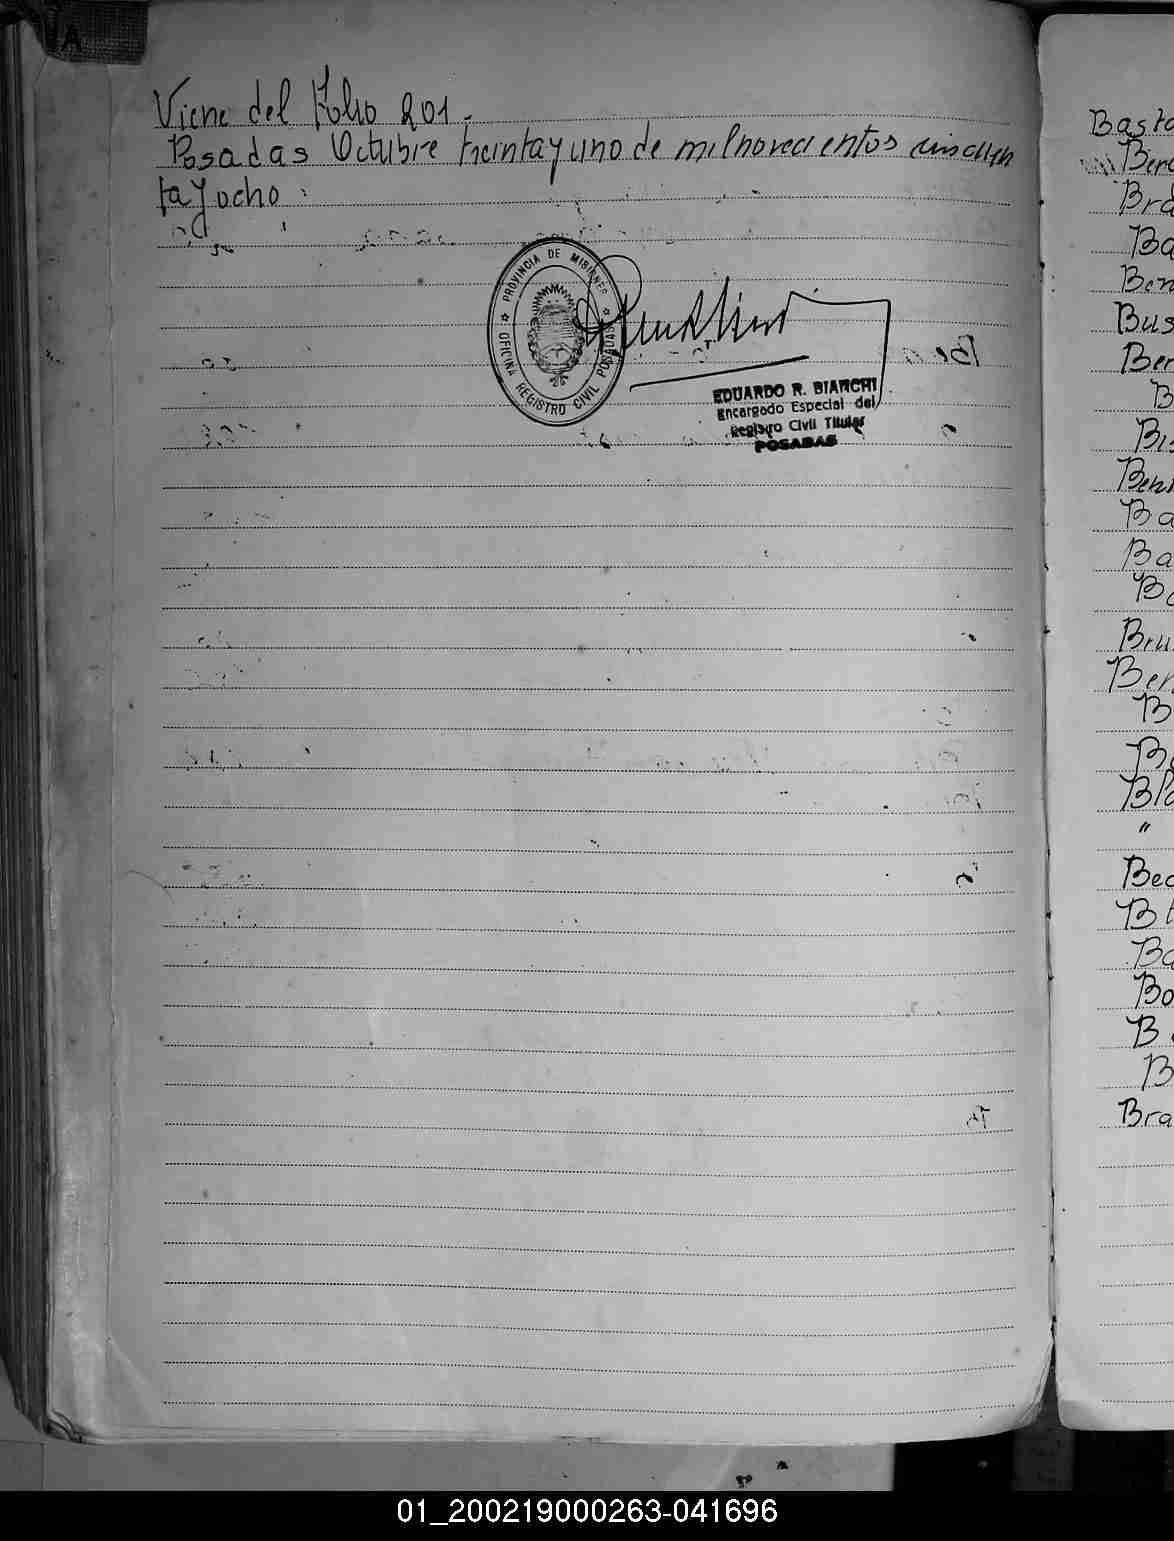 A
Viene del Folio 201.
Posadas Octubre treinta y uno de mil novecientos cincuen
ta y ocho.
PROVINCIA DE MISIONES
OFICINA REGISTRO CIVIL POSADAS
EDUARDO R. BIANCHI
Encargado Especial del
Registro Civil Titular
POSADAS
Basta
Bra
Ba
Ben
Bus
Ber
B
Bis
Ba
Ba
Bru
Ber
B
"
B
Bra
01_200219000263-041696